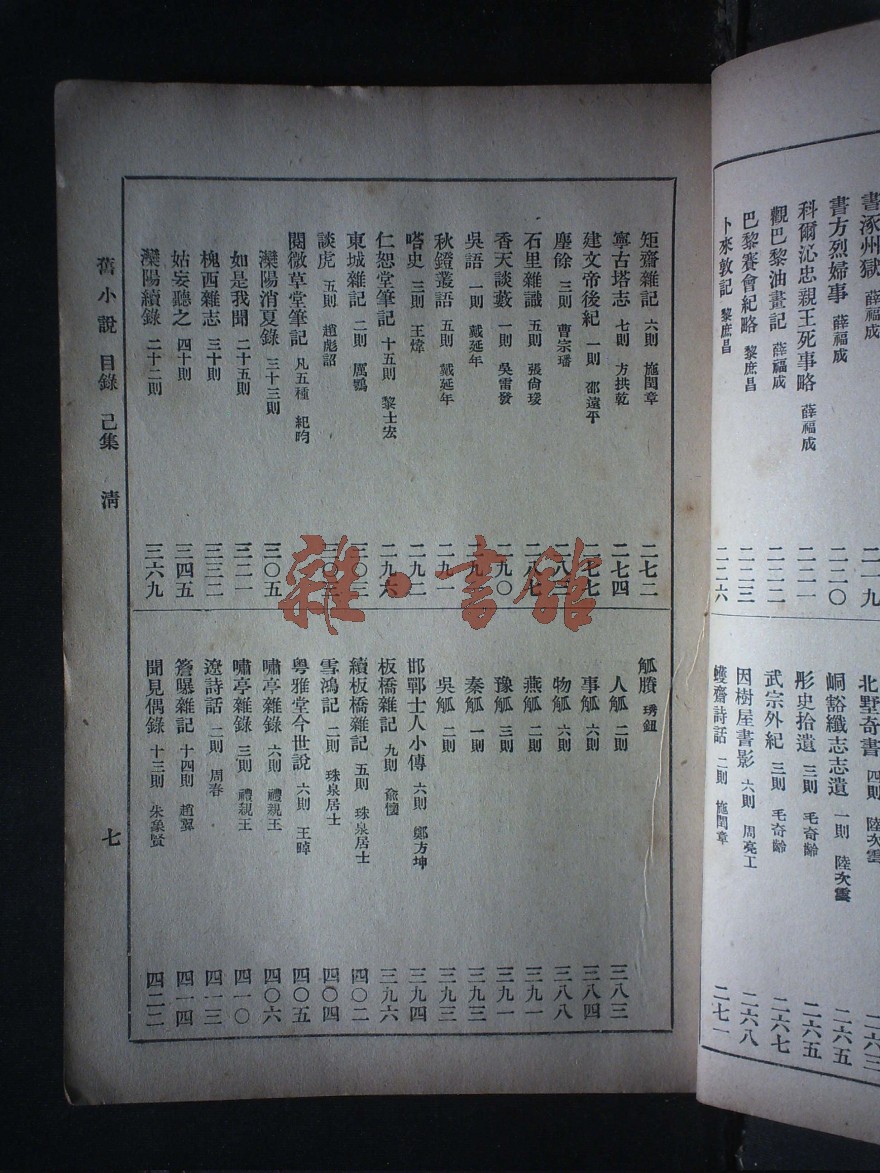 書涿州獄 薛福成 二一九
書方烈婦事 薛福成 二二〇
科爾沁忠親王死事略 薛福成 二二一
觀巴黎油畫記 薛福成 二二二
巴黎賽會紀略 黎庶昌 二二三
卜來敦記 黎庶昌 二二六
北墅奇書 四則 陸次雲 二六三
峒谿纖志志遺 一則 陸次雲 二六五
彤史拾遺 三則 毛奇齡 二六五
武宗外紀 三則 毛奇齡 二六七
因樹屋書影 六則 周亮工 二六八
蠖齋詩話 二則 施閏章 二七一
矩齋雜記 六則 施閏章 二七二
寧古塔志 七則 方拱乾 二七四
建文帝後紀 一則 邵遠平 二七七
塵餘 三則 曹宗璠 二八三
石里雜識 五則 張尙瑗 二八七
香天談藪 一則 吳雷發 二九〇
吳語 一則 戴延年 二九一
秋鐙叢語 五則 戴延年 二九一
嗒史 三則 王煒 二九二
仁恕堂筆記 十五則 黎士宏 二九六
東城雜記 二則 厲鶚 三〇二
談虎 五則 趙彪詔
閱微草堂筆記 凡五種 紀昀
灤陽消夏錄 三十三則 三〇五
如是我聞 二十五則 三二一
槐西雜志 三十則 三三二
姑妄聽之 四十則 三四五
灤陽續錄 二十二則 三六九
觚賸 琇鈕
人觚 二則 三八三
事觚 六則 三八四
物觚 六則 三八八
燕觚 二則 三九一
豫觚 三則 三九一
秦觚 一則 三九三
吳觚 二則 三九三
邯鄲士人小傳 六則 鄭方坤 三九四
板橋雜記 九則 兪懷 三九六
續板橋雜記 五則 珠泉居士 四〇二
雪鴻記 二則 珠泉居士 四〇四
粵雅堂今世說 六則 王晫 四〇五
嘯亭雜錄 六則 禮親王 四〇六
嘯亭雜錄 三則 禮親王 四一〇
遼詩話 二則 周春 四一三
簷曝雜記 十四則 趙翼 四一四
聞見偶錄 十三則 朱象賢 四二二
舊小說 目錄 己集 清 七
雜·書館